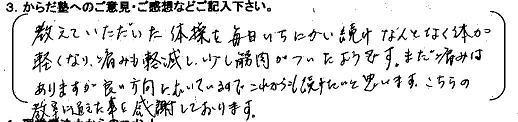 3. からだ塾へのご意見・ご感想などご記入下さい。
教えていただいた体操を毎日いちにかい続けなんとなく体が
軽くなり、痛みも軽減し、少し筋肉がついたようです。まだ痛みは
ありますが良い方向に向いているのでこれからも続けたいと思います。こちらの
教室に通えた事を感謝しております。